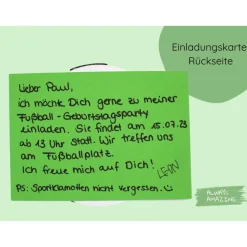 Einladungskarte
Rückseite
Lieber Paul,
ich möchte Dich gerne zu meiner
Fußball-Geburtstagsparty
einladen. Sie findet am 15.07.23
ab 13 Uhr statt. Wir treffen uns
am Fußballplatz.
Ich freue mich auf Dich!
LEVIN
PS: Sportklamotten nicht vergessen. ☺
ALWAYS
AMAZING